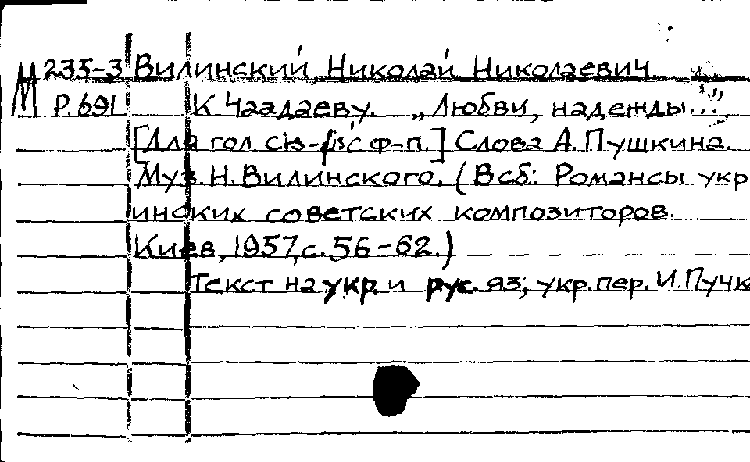 М 235-3 Вилинский Николай Николаевич
Р.691 К Чаадаеву. „Любви, надежды..."
[Для гол. с ф-п.] Слова А. Пушкина.
Муз. Н. Вилинского. (В сб: Романсы укр
инских советских композиторов.
Киев, 1957, с. 56-62.)
Текст на укр. и рус. яз; укр. пер. И. Пучк